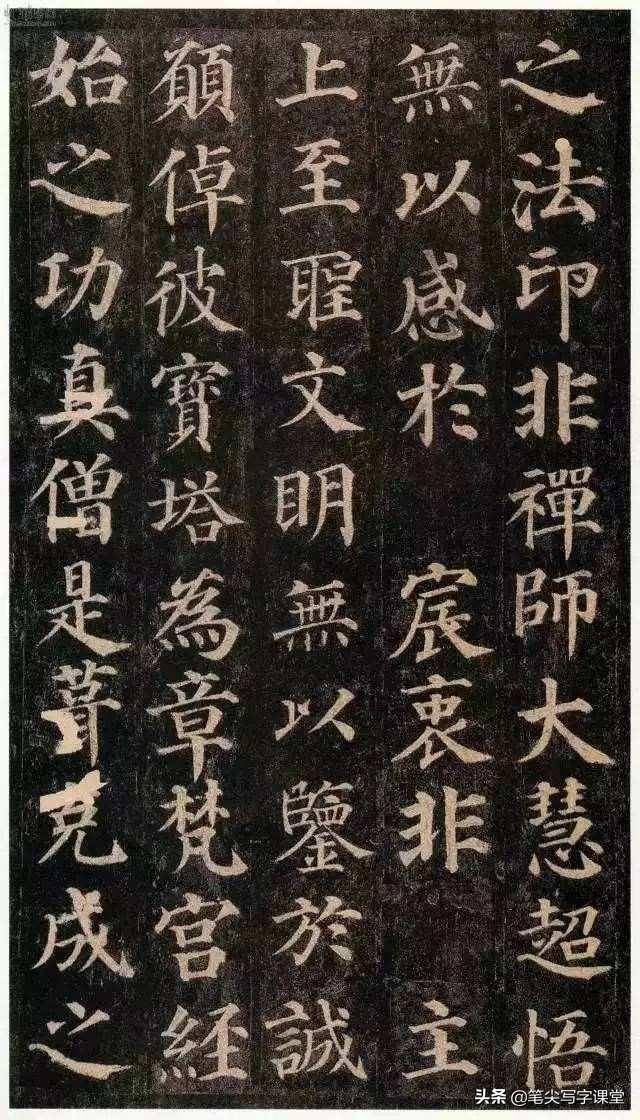 之法印非禪師大慧超悟
無以感於 宸衷非 主
上至聖文明無以鑒於誠
願倬彼寶塔為章梵宮經
始之功真僧是葺克成之
头条 @笔尖写字课堂